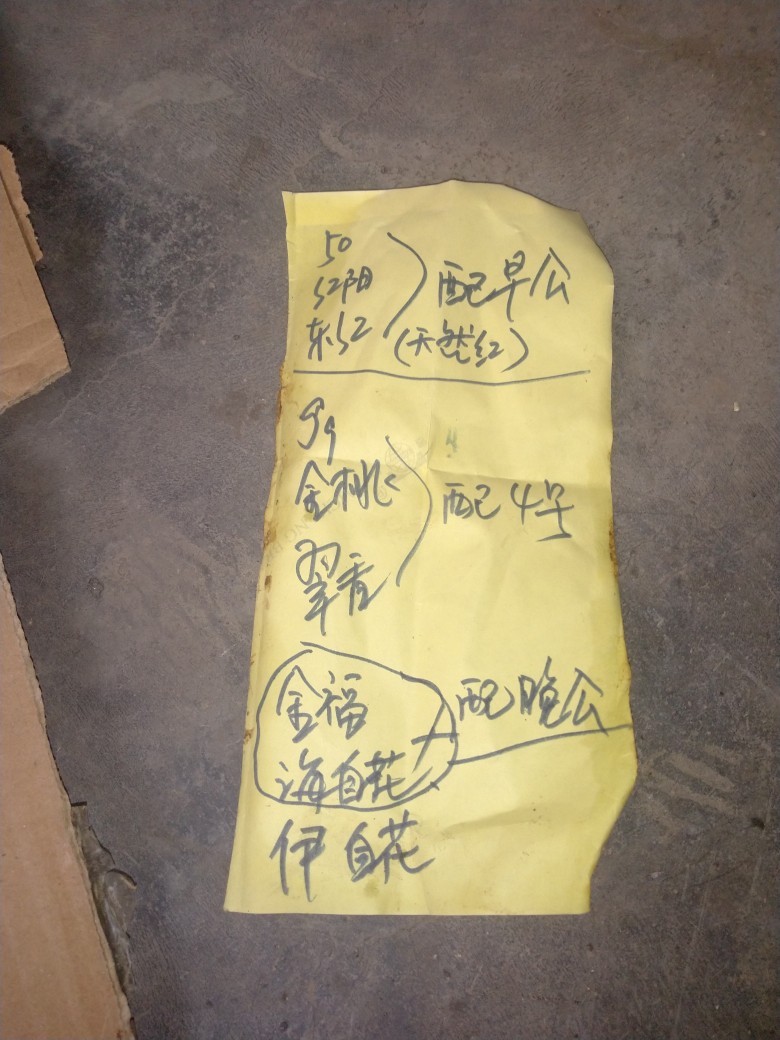 50
红阳
东红
配早公
(天然红)
99
金桃
翠香
配4号
金福
海自花
配晚公
伊自花